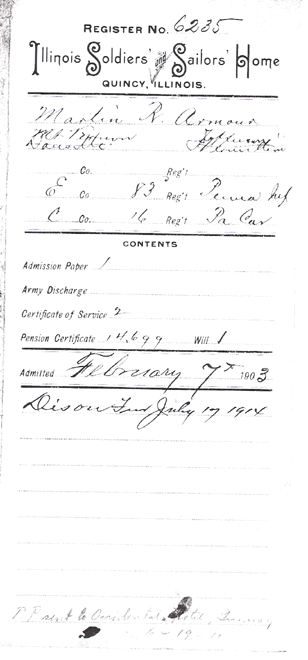 REGISTER No. 6235
Illinois Soldiers' and Sailors' Home
QUINCY, ILLINOIS.
Martin R. Armour
Mt
Co. Reg't
E Co. 83 Reg't Penna Inf
C Co. 16 Reg't Pa Cav
CONTENTS
Admission Paper 1
Army Discharge
Certificate of Service 2
Pension Certificate 14,699 Will 1
Admitted February 7th 1903
July 17 1914
P P sent to Occidental Hotel, Quincy,